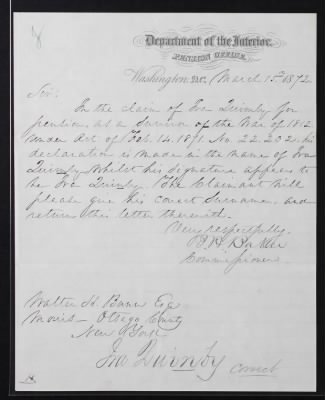 8
Department of the Interior,
PENSION OFFICE,
Washington, D.C., March 15th 1872
Sir:
In the claim of Ira Quimby for
pension, as a survivor of the War of 1812
under Act of Feb. 14. 1871, No. 22.202, his
declaration is made in the name of Ira
Quimby whilst his signature appears to
be Ira Quinby. The Claimant will
please give his correct Surname, and
return this letter therewith.
Very respectfully,
Baker
Commissioner
Walter H. Bunn Esq
Morris Otsego County
New York
Ira Quinby correct